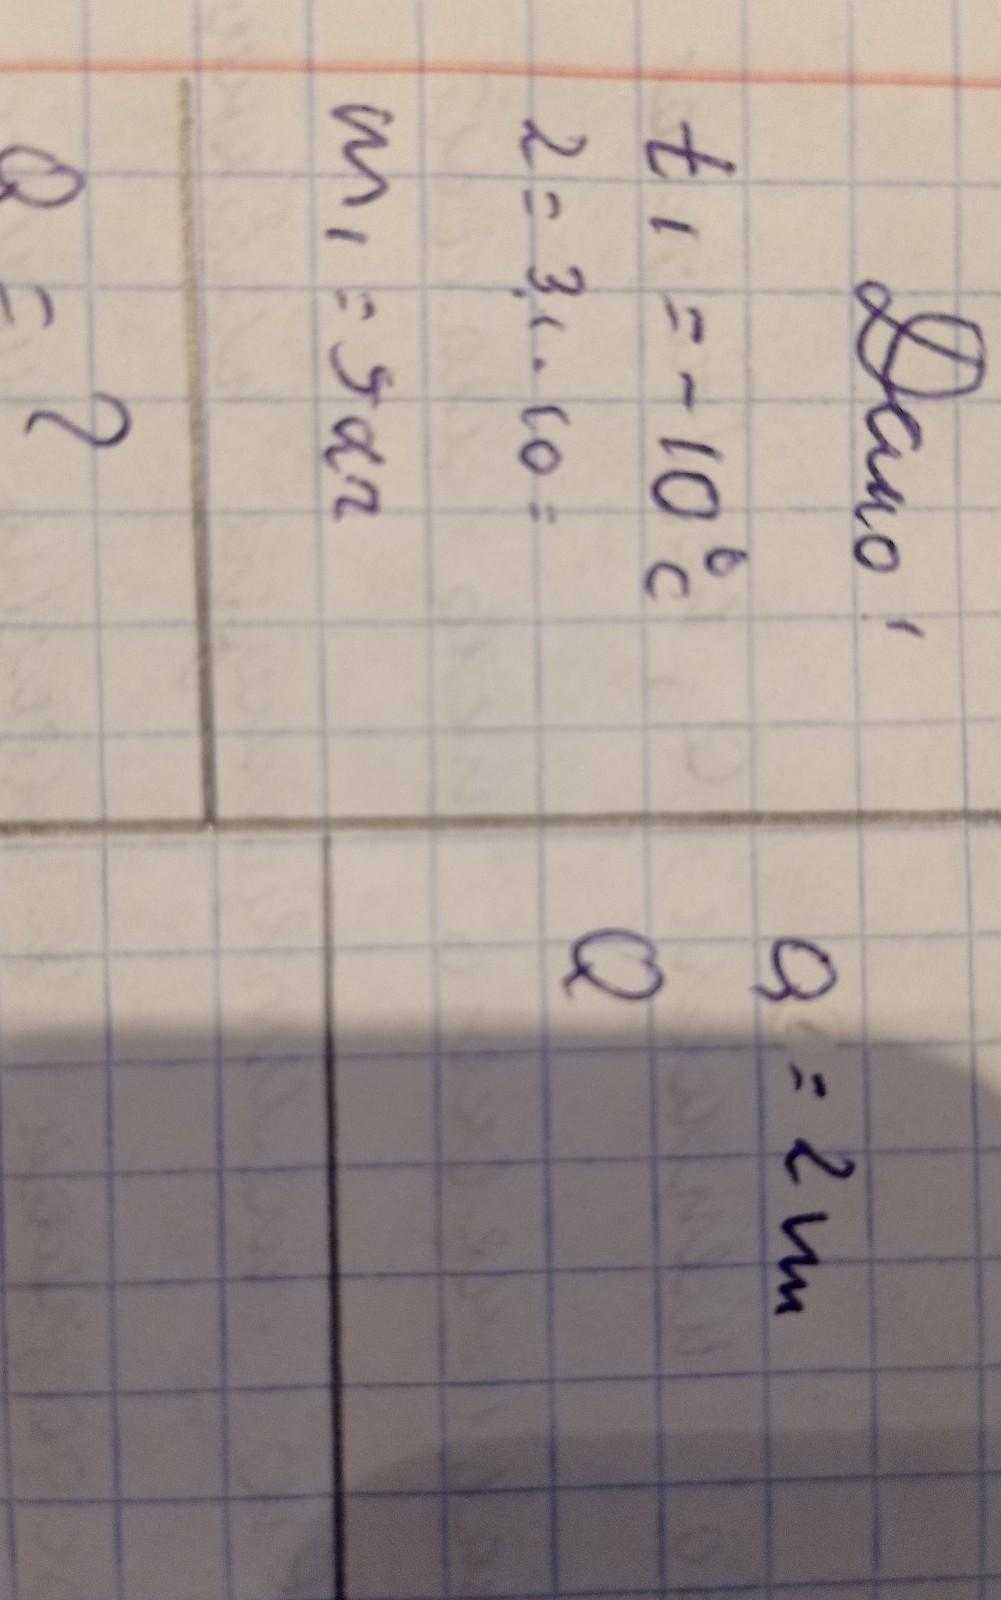 Дано:
t₁ = -10°C
λ = 3,4·10⁵
m₁ = 5 кг
Q = ?
Q = λm
Q